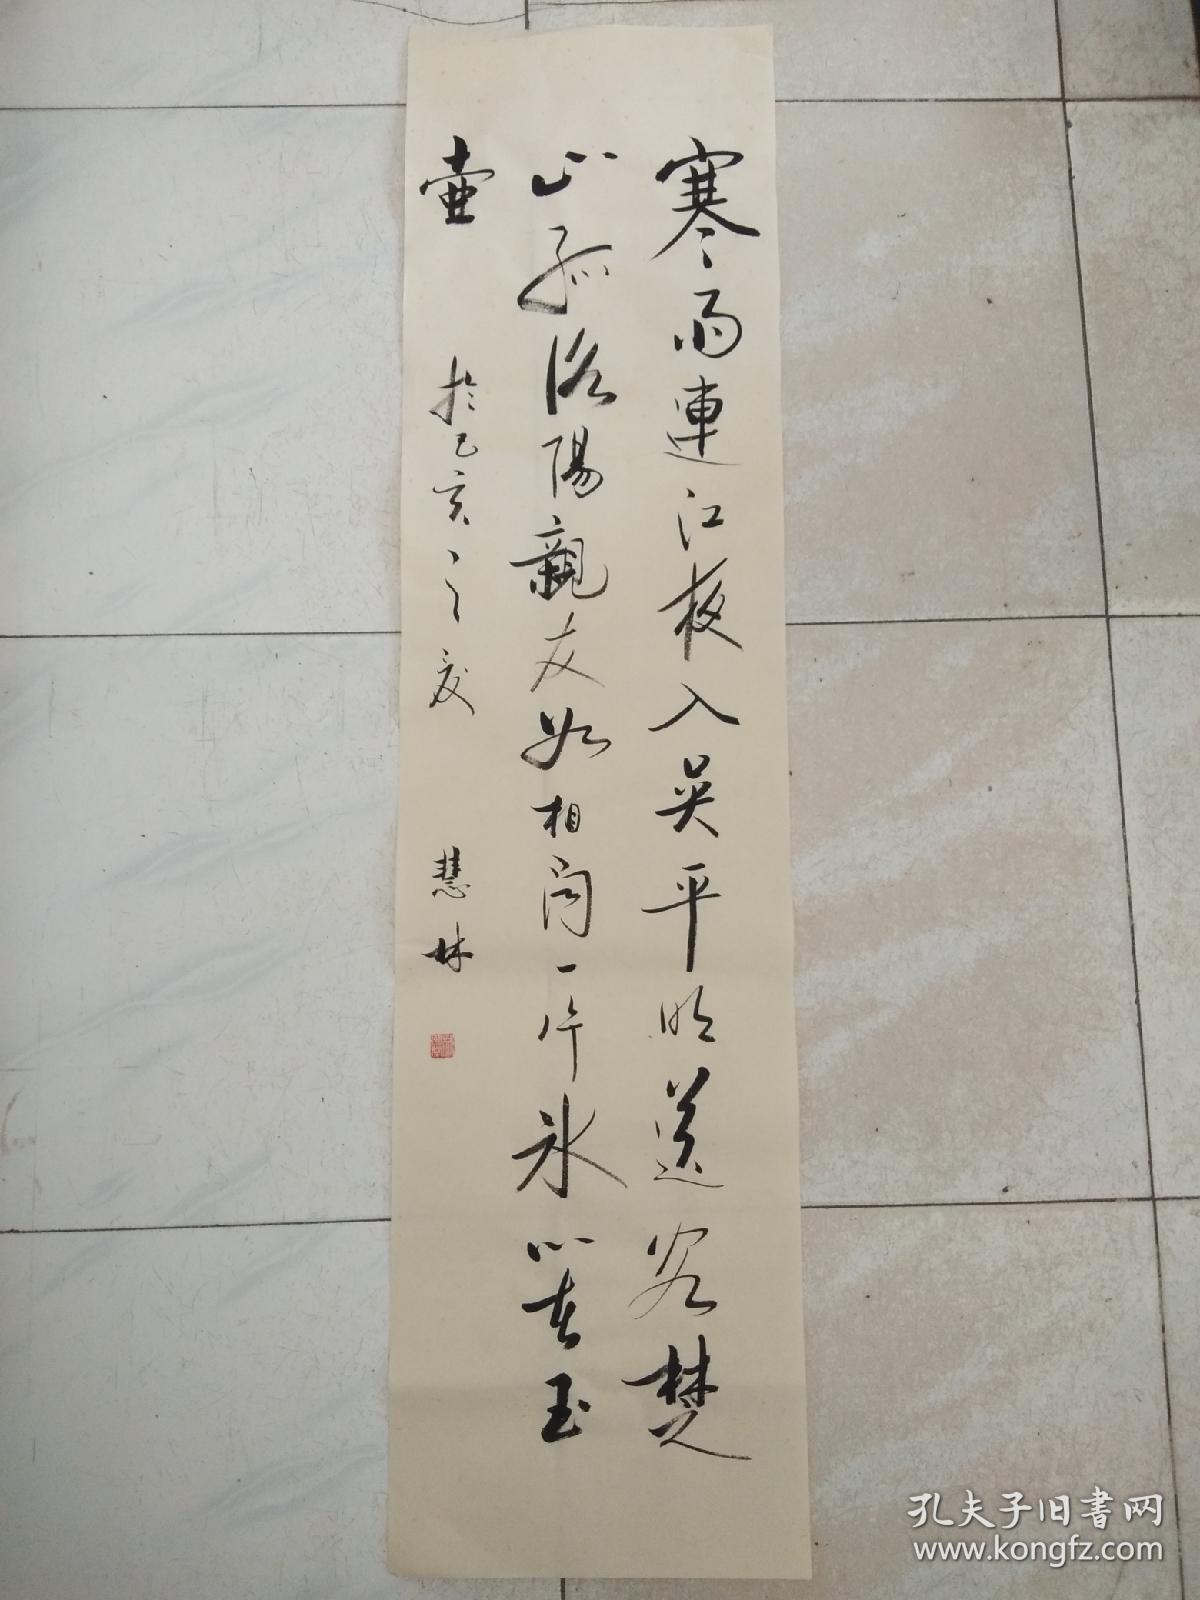 寒雨連江夜入吴平明送客楚
山孤洛陽親友如相问一片氷心在玉
壷 於己亥之夏 慧林
孔夫子旧書网
www.kongfz.com